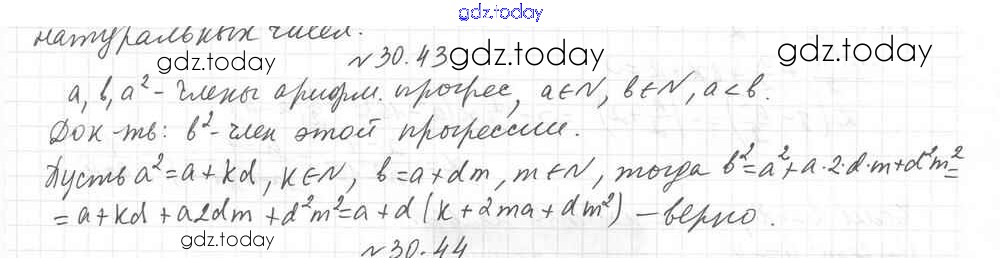 gdz.today
натуральных чисел.
gdz.today
№30.43 gdz.today gdz.today
a, b, a² - члены арифм. прогрес, a∈N, b∈N, a<b.
Док-ть: b² - член этой прогрессии.
Пусть a²=a+kd, k∈N, b=a+dm, m∈N, тогда b²=a²+a·2·d·m+d²m²=
=a+kd+a2dm+d²m²=a+d(k+2ma+dm²) - верно.
gdz.today
№30.44